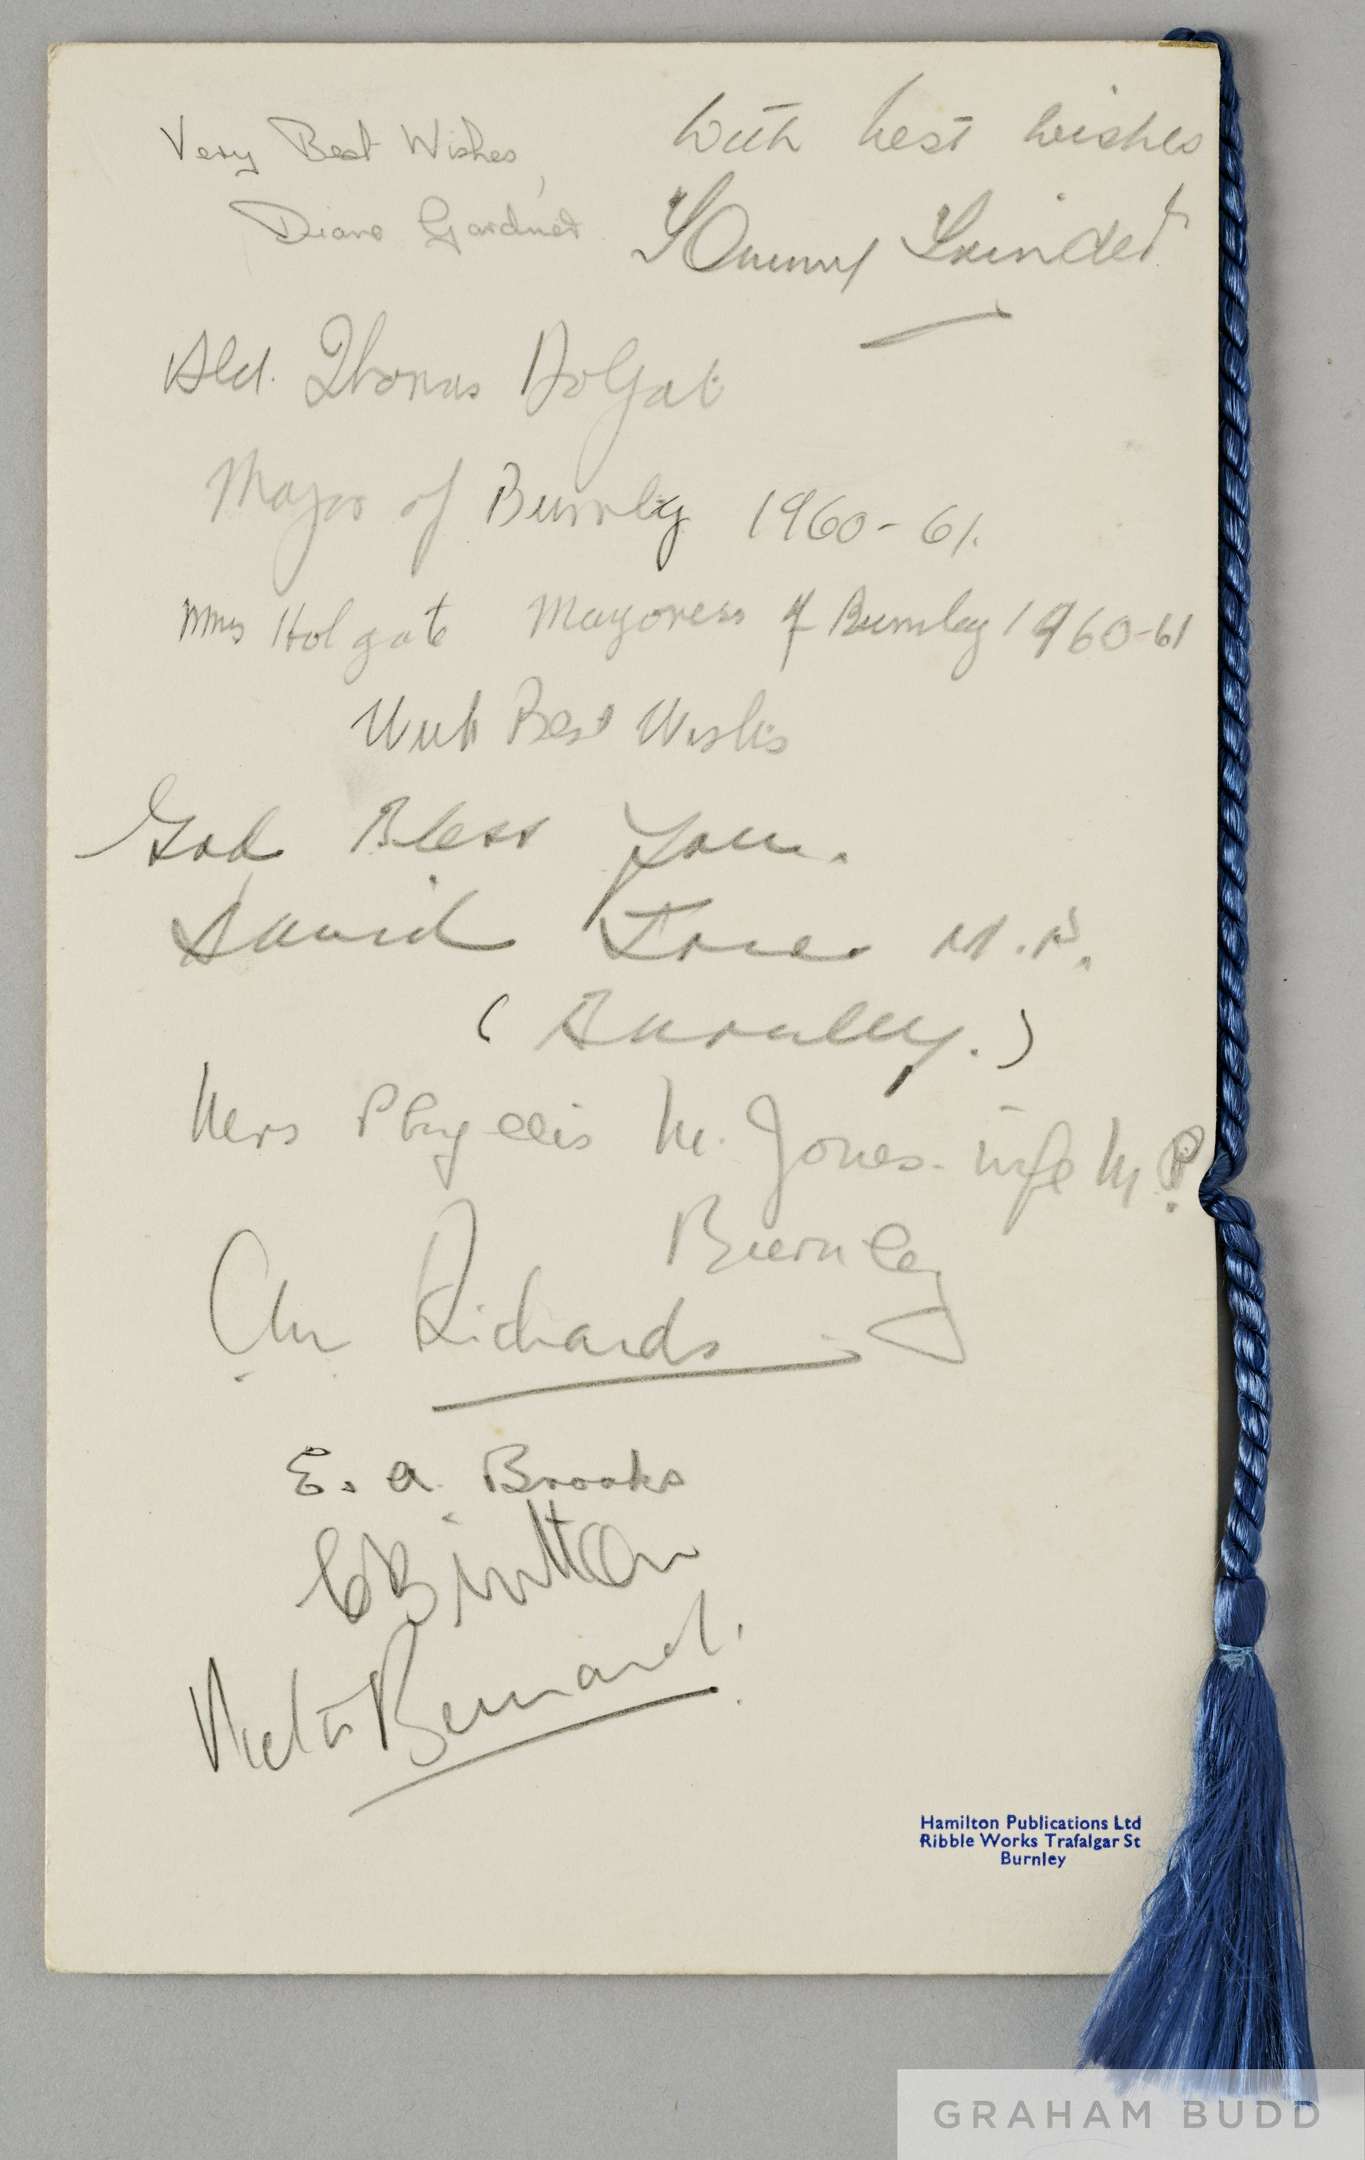 Very Best Wishes,
Diane Gardner
With best wishes
Tommy Trinder
Ald. Thomas Holgate
Mayor of Burnley 1960-61.
Mrs Holgate Mayoress of Burnley 1960-61
With Best Wishes
God Bless You.
David Jones M.P.
(Burnley.)
Mrs Phyllis M. Jones - wife M.P.
Burnley
Richards
E. A. Brooks
Victor Bernard.
Hamilton Publications Ltd
Ribble Works Trafalgar St
Burnley
GRAHAM BUDD